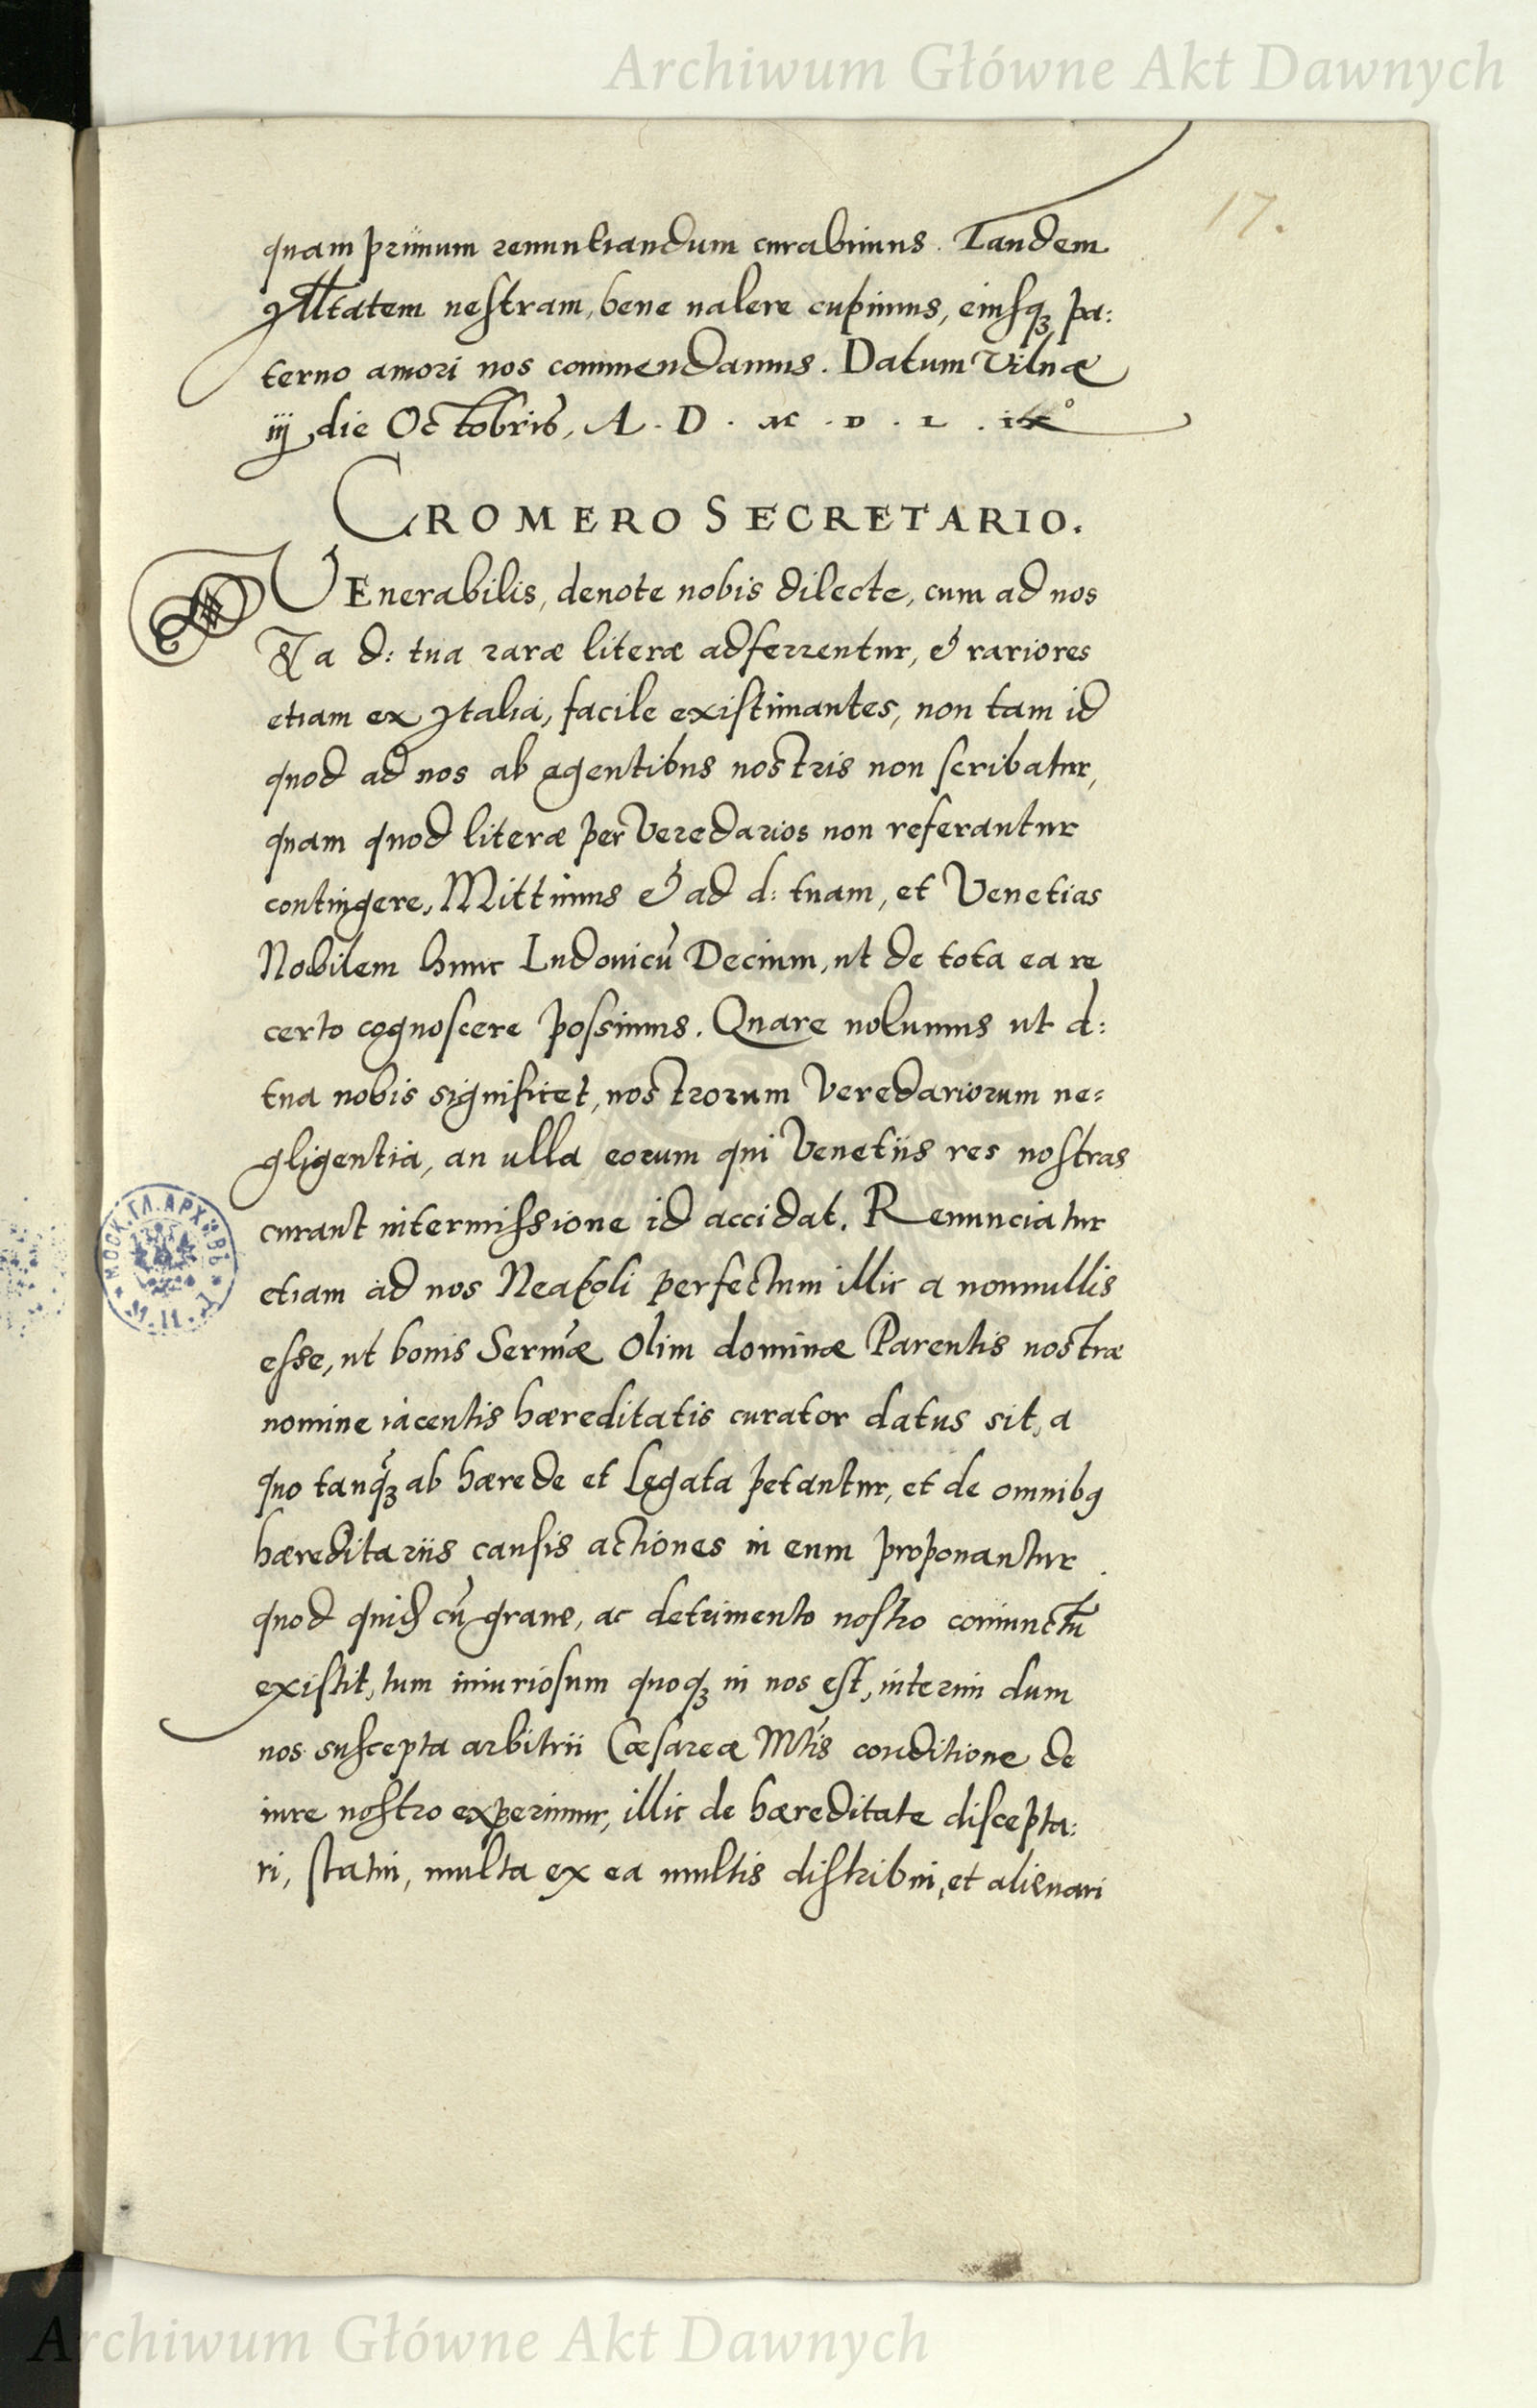 Archiwum Główne Akt Dawnych
17.
quam primum renuntiandum curabimus. Tandem
Illtatem uestram, bene ualere cupimus, eiusq́ꝫ pa:
terno amori nos commendamus. Datum Vilnæ
iij die Octobris, A. D. M. D. L. ix°
CROMERO SECRETARIO.
VEnerabilis, deuote nobis dilecte, cum ad nos
& a d: tua raræ literæ adferrentur, & rariores
etiam ex Italia, facile existimantes, non tam id
quod ad nos ab agentibus nostris non scribatur,
quam quod literæ per Veredarios non referantur
contingere, Mittimus & ad d: tuam, et Venetias
Nobilem hunc Ludouicū Decium, ut de tota ea re
certo cognoscere possimus. Quare uolumus ut d:
tua nobis significet, nostrorum Veredariorum ne=
gligentia, an ulla eorum qui Venetiis res nostras
curant intermissione id accidat. Renunciatur
etiam ad nos Neapoli perfectum illic a nonnullis
esse, ut bonis Sermæ olim dominæ Parentis nostræ
nomine iacentis hæreditatis curator datus sit, a
quo tanq̃ꝫ ab hærede et legata petantur, et de omnibꝯ
hæreditariis causis actiones in eum proponantur.
quod quid cū graue, ac detrimento nostro coniunctū
existit, tum iniuriosum quoqꝫ in nos est, interim dum
nos suscepta arbitrii Cæsareæ Mtis conditione de
iure nostro experimur, illic de hæreditate discepta:
ri, statui, multa ex ea multis distribui, et alienari
МОСК. ГЛ. АРХИВЪ
М. И. Д.
Archiwum Główne Akt Dawnych